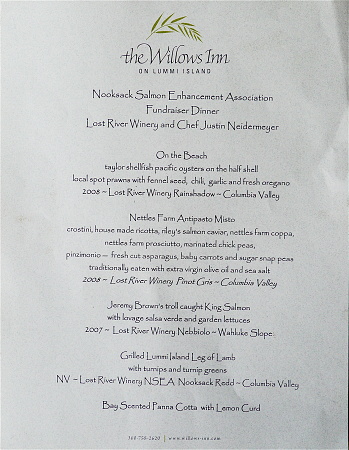 the Willows Inn
ON LUMMI ISLAND
Nooksack Salmon Enhancement Association
Fundraiser Dinner
Lost River Winery and Chef Justin Neidermeyer
On the Beach
taylor shellfish pacific oysters on the half shell
local spot prawns with fennel seed, chili, garlic and fresh oregano
2008 ~ Lost River Winery Rainshadow ~ Columbia Valley
Nettles Farm Antipasto Misto
crostini, house made ricotta, riley's salmon caviar, nettles farm coppa,
nettles farm prosciutto, marinated chick peas,
pinzimonio ~ fresh cut asparagus, baby carrots and sugar snap peas
traditionally eaten with extra virgin olive oil and sea salt
2008 ~ Lost River Winery Pinot Gris ~ Columbia Valley
Jeremy Brown's troll caught King Salmon
with lovage salsa verde and garden lettuces
2007 ~ Lost River Winery Nebbiolo ~ Wahluke Slope
Grilled Lummi Island Leg of Lamb
with turnips and turnip greens
NV ~ Lost River Winery NSEA Nooksack Redd ~ Columbia Valley
Bay Scented Panna Cotta with Lemon Curd
360-758-2620 | www.willows-inn.com